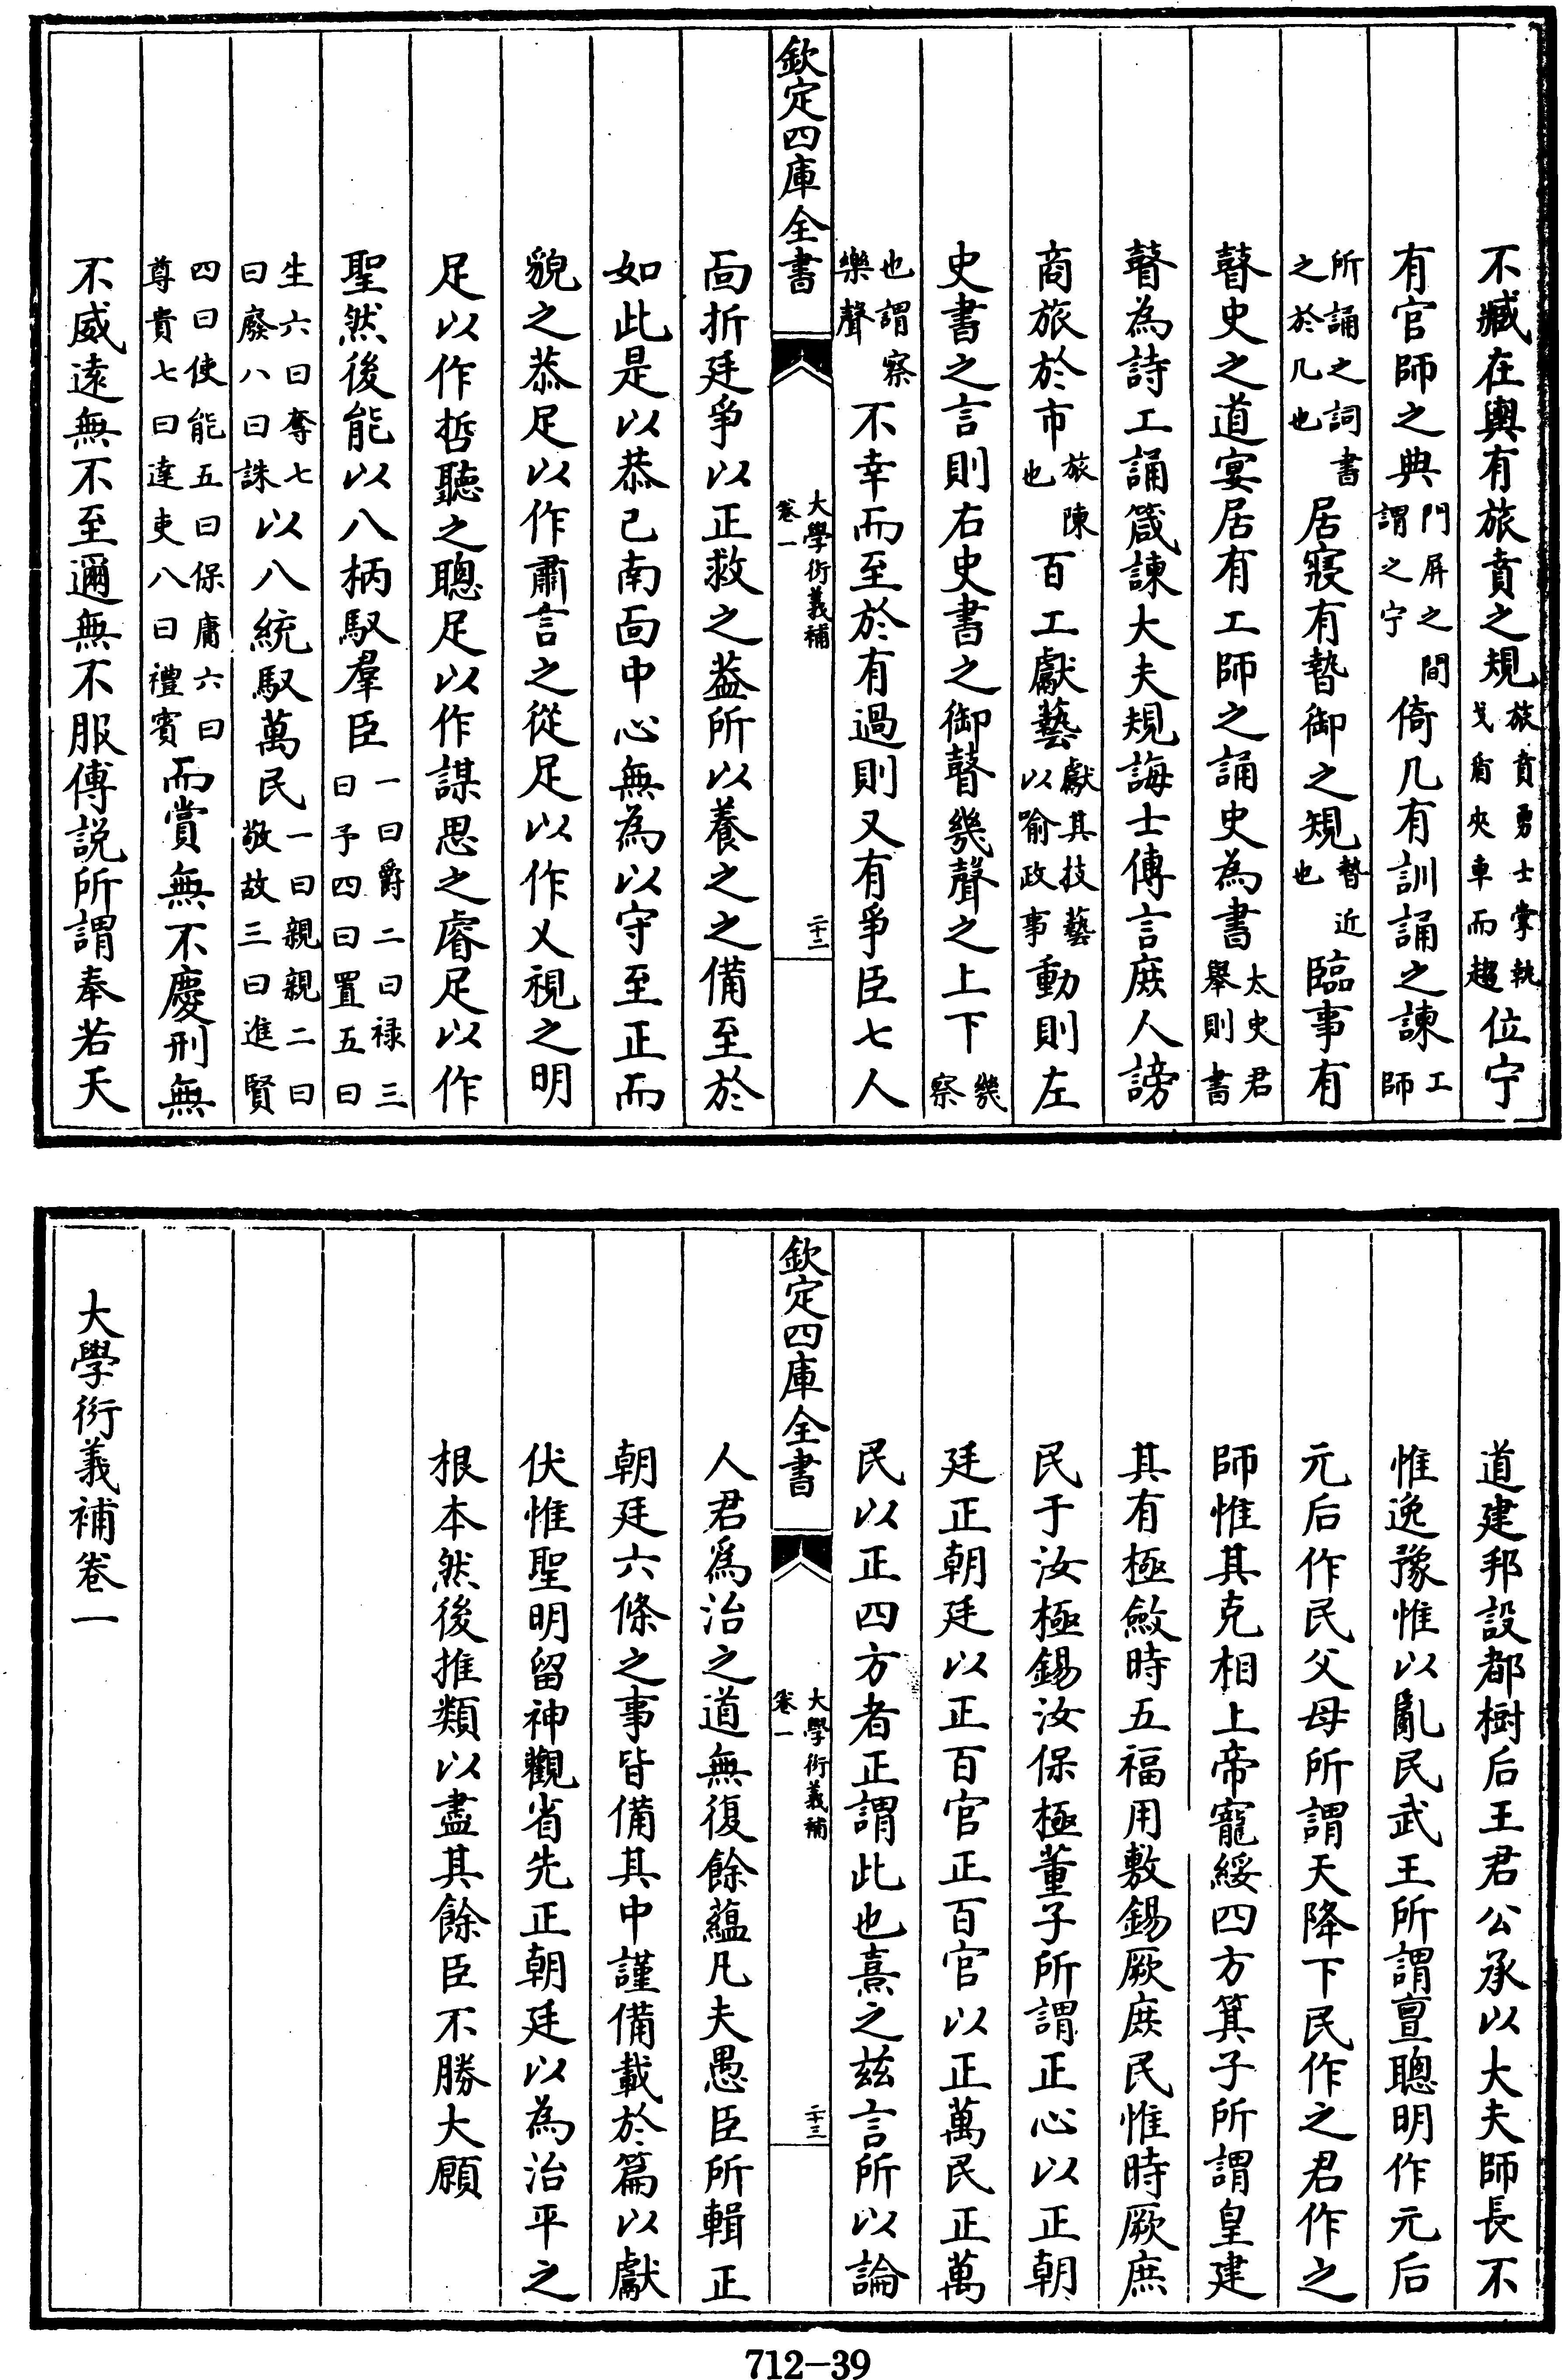 不臧在輿有旅賁之規旅賁勇士掌執戈盾夾車而趨位宁
有官師之典門屏之間謂之宁倚几有訓誦之諫工師
所誦之詞書之於几也居寢有暬御之規暬近也臨事有
瞽史之道宴居有工師之誦史為書太史君舉則書
瞽為詩工誦箴諫大夫規誨士傳言庶人謗
商旅於市旅陳也百工獻藝獻其技藝以喻政事動則左
史書之言則右史書之御瞽幾聲之上下幾察
也謂察樂聲不幸而至於有過則又有爭臣七人
欽定四庫全書
大學衍義補
卷一
二十二
面折廷爭以正救之蓋所以養之之備至於
如此是以恭己南面中心無為以守至正而
貌之恭足以作肅言之從足以作乂視之明
足以作哲聽之聰足以作謀思之睿足以作
聖然後能以八柄馭羣臣一曰爵二曰祿三曰予四曰置五曰
生六曰奪七曰廢八曰誅以八統馭萬民一曰親親二曰敬故三曰進賢
四曰使能五曰保庸六曰尊貴七曰達吏八曰禮賓而賞無不慶刑無
不威遠無不至邇無不服傅説所謂奉若天
道建邦設都樹后王君公承以大夫師長不
惟逸豫惟以亂民武王所謂亶聰明作元后
元后作民父母所謂天降下民作之君作之
師惟其克相上帝寵綏四方箕子所謂皇建
其有極斂時五福用敷錫厥庶民惟時厥庶
民于汝極錫汝保極董子所謂正心以正朝
廷正朝廷以正百官正百官以正萬民正萬
民以正四方者正謂此也熹之兹言所以論
欽定四庫全書
大學衍義補
卷一
二十三
人君爲治之道無復餘蘊凡夫愚臣所輯正
朝廷六條之事皆備其中謹備載於篇以獻
伏惟聖明留神觀省先正朝廷以為治平之
根本然後推類以盡其餘臣不勝大願
大學衍義補卷一
712-39